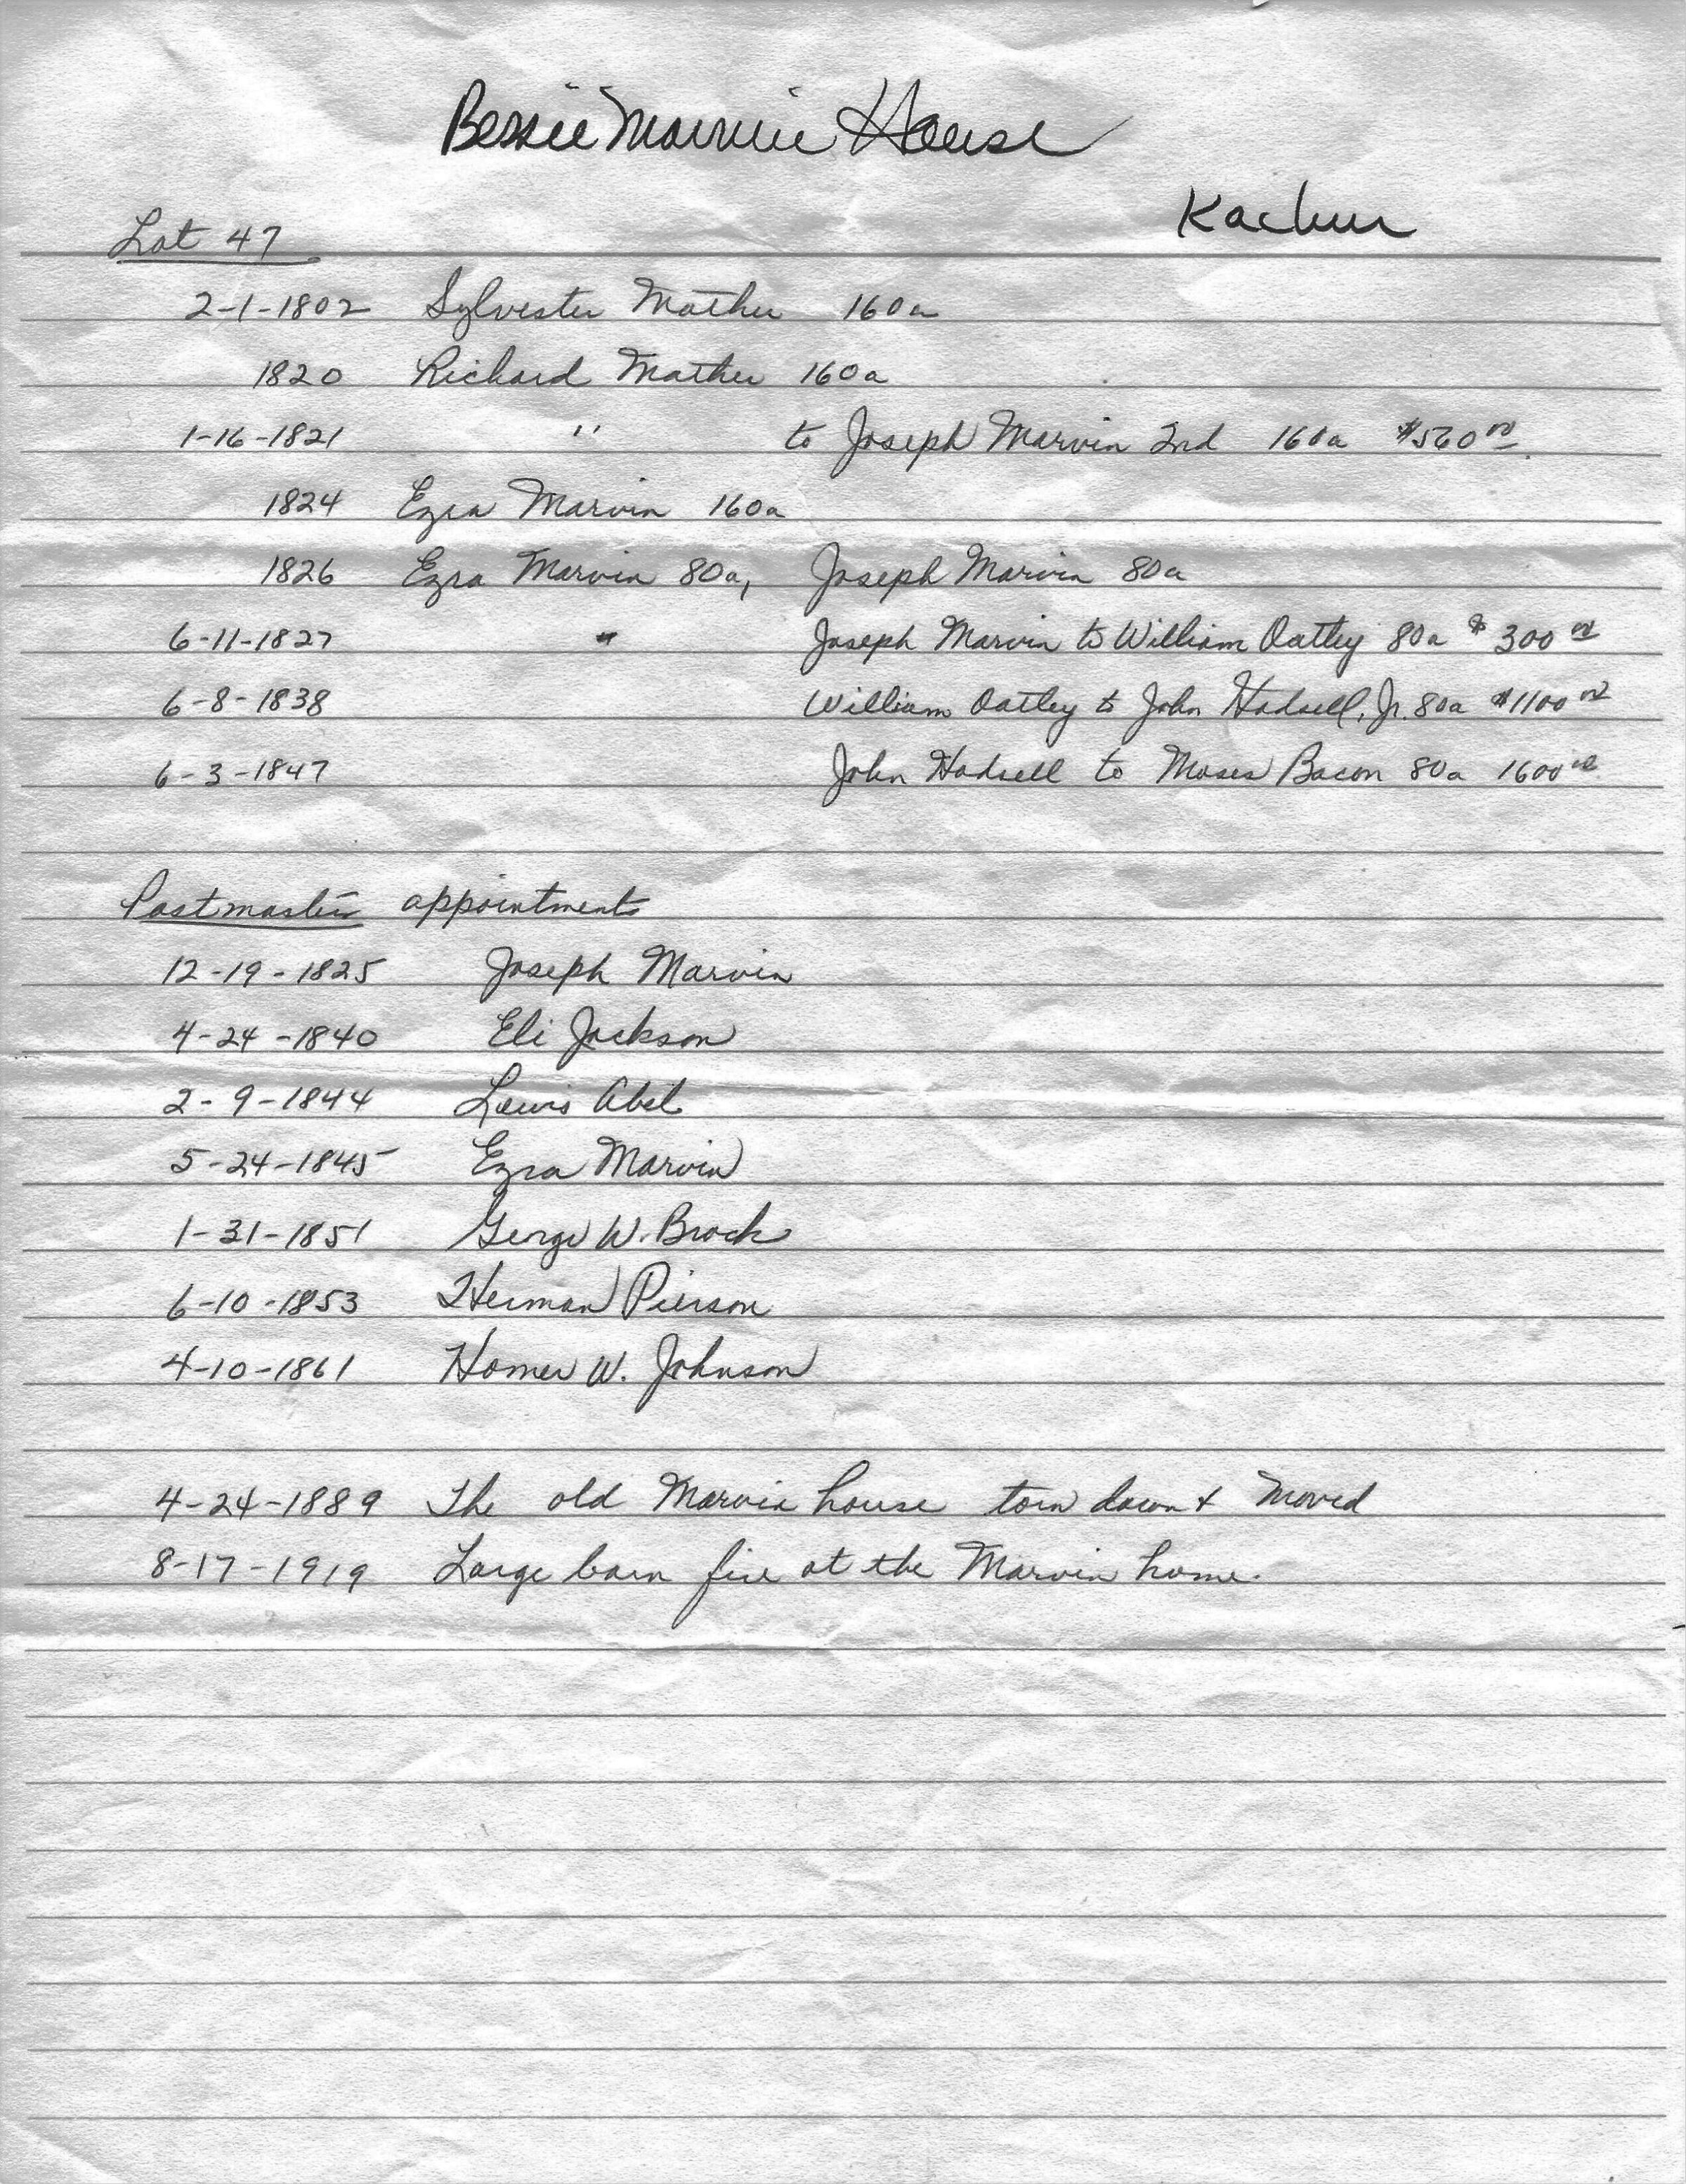 Bessie Marvin House
Kachur
Lot 47
2-1-1802 Sylvester Mather 160a
1820 Richard Mather 160a
1-16-1821 " to Joseph Marvin 2nd 160a $560 00
1824 Ezra Marvin 160a
1826 Ezra Marvin 80a, Joseph Marvin 80a
6-11-1827 " Joseph Marvin to William Oatley 80a $300 00
6-8-1838 William Oatley to John Hodsell, Jr. 80a $1100 00
6-3-1847 John Hodsell to Moses Bacon 80a 1600 00
Postmasters appointments
12-19-1825 Joseph Marvin
4-24-1840 Eli Jackson
2-9-1844 Lewis Abel
5-24-1845 Ezra Marvin
1-31-1851 George W. Brock
6-10-1853 Herman Pierson
4-10-1861 Homer W. Johnson
4-24-1889 The old Marvin house torn down & moved
8-17-1919 Large barn fire at the Marvin home.